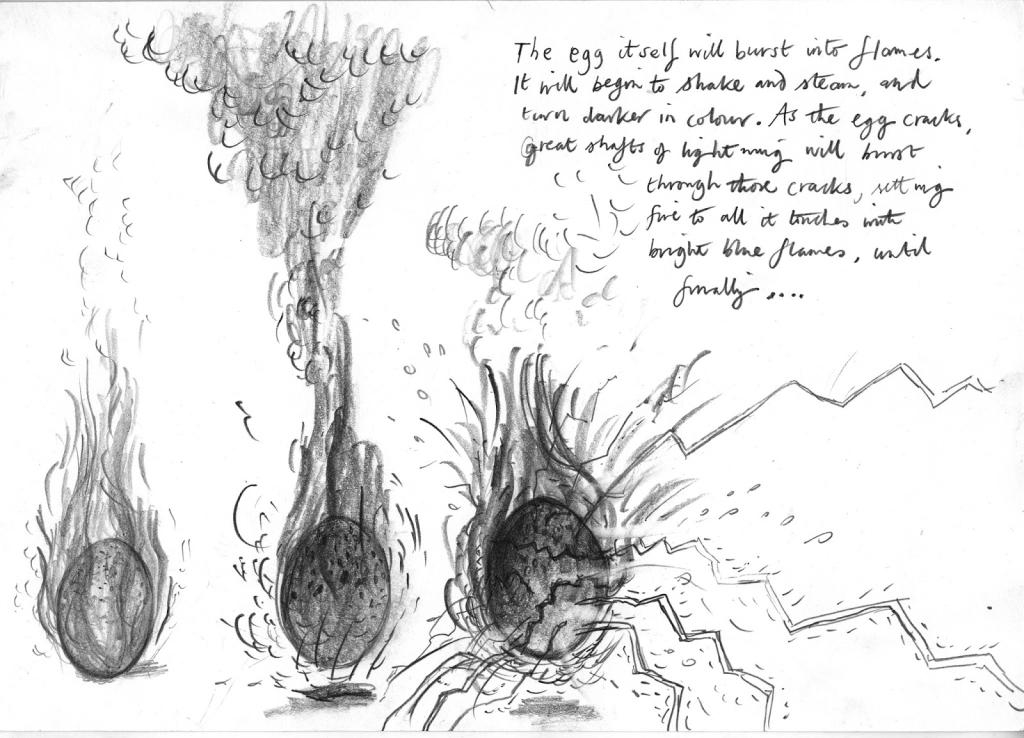 The egg itself will burst into flames.
It will begin to shake and steam, and
turn darker in colour. As the egg cracks,
great shafts of lightning will burst
through those cracks, setting
fire to all it touches with
bright blue flames, until
finally ....